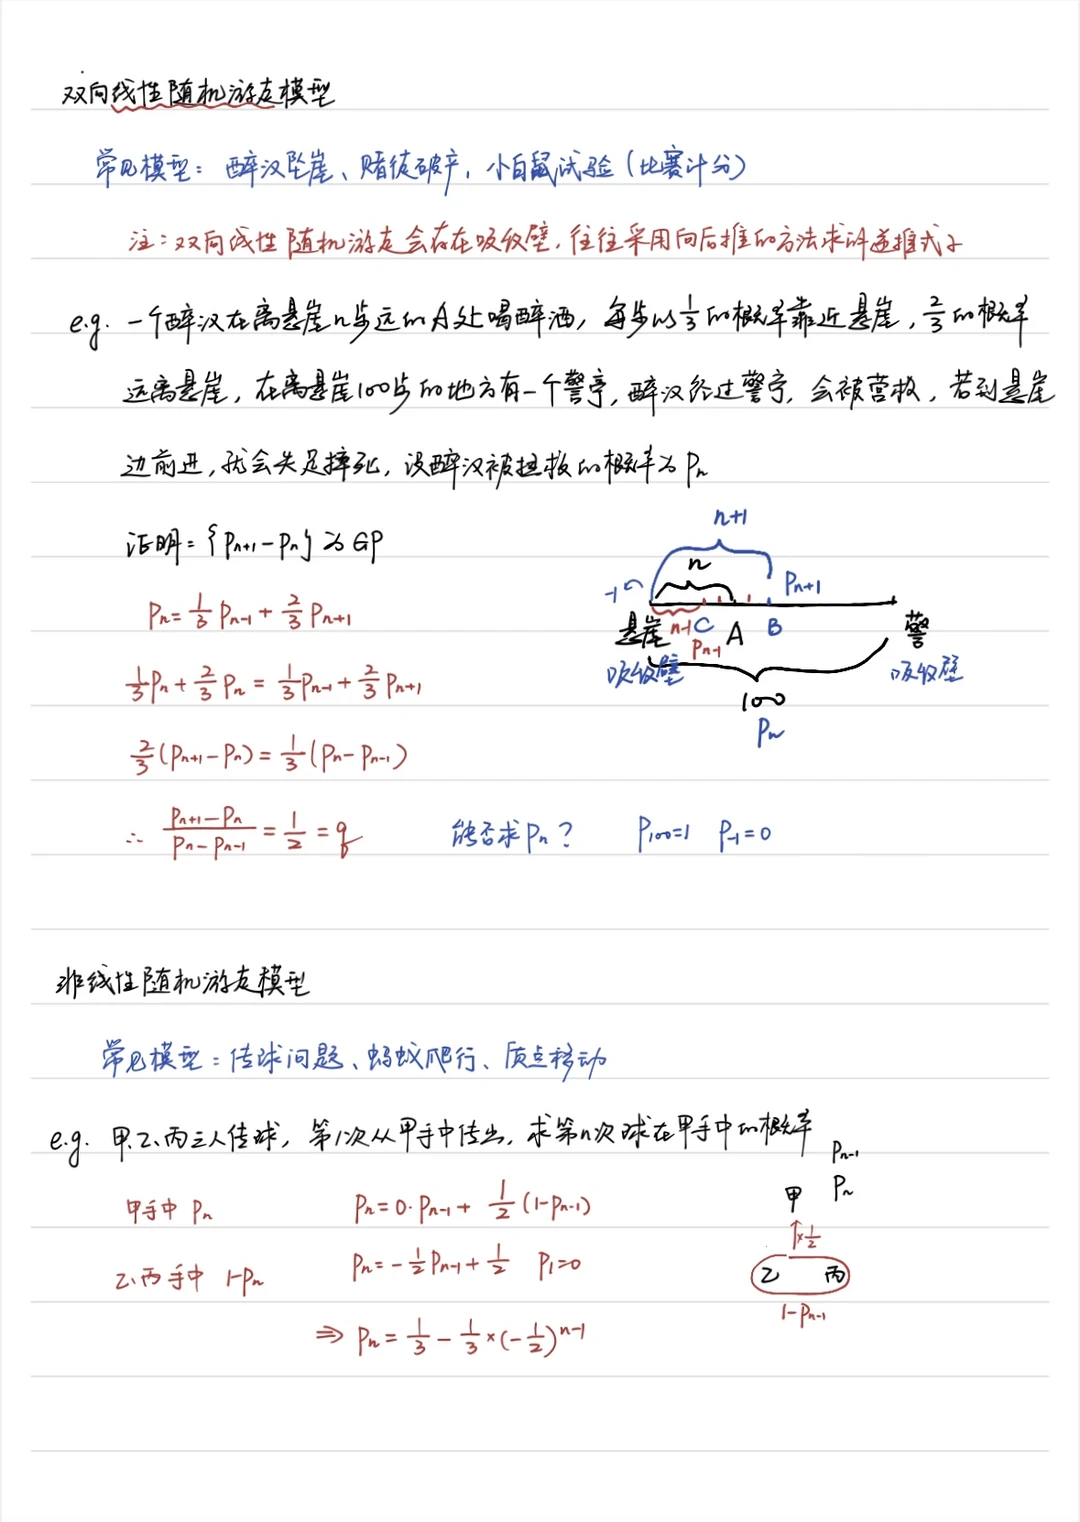 双向线性随机游走模型
常见模型：醉汉坠崖、赌徒破产，小白鼠试验（比赛计分）
注：双向线性随机游走会存在吸收壁，往往采用向后推的方法求计递推式子
e.g. 一个醉汉在离悬崖n步远的A处喝醉酒，每步以1/3的概率靠近悬崖，2/3的概率
远离悬崖，在离悬崖100步的地方有一个警亭，醉汉经过警亭，会被营救，若到悬崖
边前进，就会失足摔死，设醉汉被拯救的概率为Pn
证明：{Pn+1-Pn}为GP
Pn=1/3Pn-1+2/3Pn+1
1/3Pn+2/3Pn=1/3Pn-1+2/3Pn+1
2/3(Pn+1-Pn)=1/3(Pn-Pn-1)
∴ (Pn+1-Pn)/(Pn-Pn-1)=1/2=q
能否求Pn？ P100=1 P-1=0
n+1
n
-1 Pn+1
悬崖 n-1 C A B 警
Pn-1
吸收壁 吸收壁
100
Pn
非线性随机游走模型
常见模型：传球问题、蚂蚁爬行、质点移动
e.g. 甲.乙.丙三人传球，第1次从甲手中传出，求第n次球在甲手中的概率
甲手中 Pn Pn=0·Pn-1+1/2(1-Pn-1)
乙、丙手中 1-Pn Pn=-1/2Pn-1+1/2 P1=0
⇒ Pn=1/3-1/3×(-1/2)^n-1
Pn-1
甲 Pn
↑×1/2
乙 丙
1-Pn-1